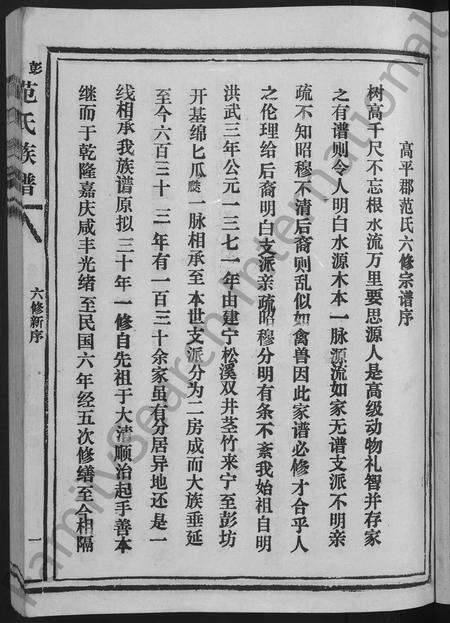 高平郡范氏六修宗谱序
树高千尺不忘根水流万里要思源人是高级动物礼智并存家
之有谱则令人明白水源木本一脉源流如家无谱支派不明亲
疏不知昭穆不清后裔则乱似如禽兽因此家谱必修才合乎人
之伦理给后裔明白支派亲疏昭穆分明有条不紊我始祖自明
洪武三年公元一三七一年由建宁松溪双井茎竹来宁至彭坊
开基绵匕瓜瓞一脉相承至本世支派分为二房成而大族垂延
至今六百三十三年有一百三十余家虽有分居异地还是一
线相承我族谱原拟三十年一修自先祖于大清顺治起手善本
继而于乾隆嘉庆咸丰光绪至民国六年经五次修缮至今相隔
彭
范氏族谱
六修新序
一
FamilySearch International